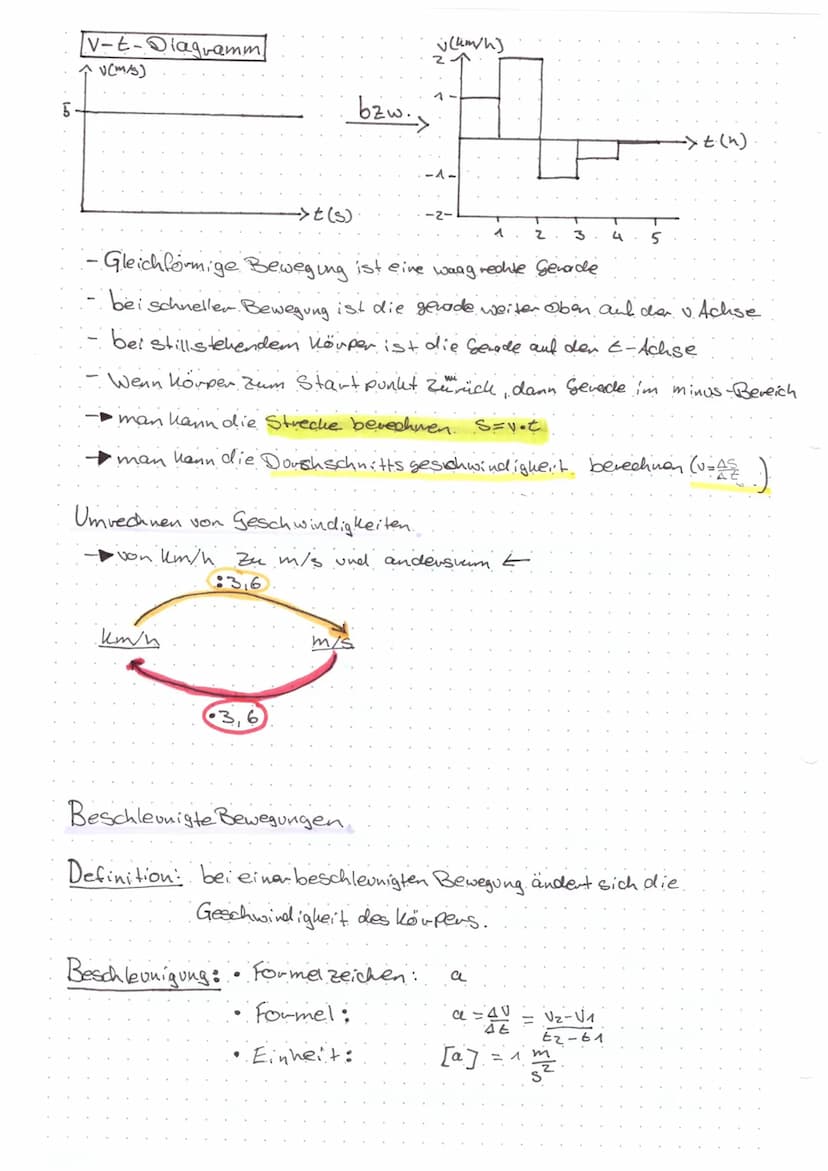 v-t-Diagramm
v(m/s)
5
t(s)
bzw.
v(km/h)
2
1
-1-
-2-
t(h)
1 2 3 4 5
- Gleichförmige Bewegung ist eine waagrechte Gerade
- bei schneller Bewegung ist die gerade weiter oben auf der v Achse
- bei stillstehendem Körper ist die Gerade auf der t-Achse
- Wenn Körper zum Startpunkt zurück, dann Gerade im minus-Bereich
→ man kann die Strecke berechnen. S=v•t
→ man kann die Durchschnittsgeschwindigkeit berechnen (v=ΔS/Δt)
Umrechnen von Geschwindigkeiten
→ von km/h zu m/s und andersrum ←
:3,6
km/h m/s
•3,6
Beschleunigte Bewegungen
Definition: bei einer beschleunigten Bewegung ändert sich die
Geschwindigkeit des Körpers.
Beschleunigung: • Formelzeichen: a
• Formel: a = Δv/Δt = v2-v1/t2-t1
• Einheit: [a] = 1 m/s²